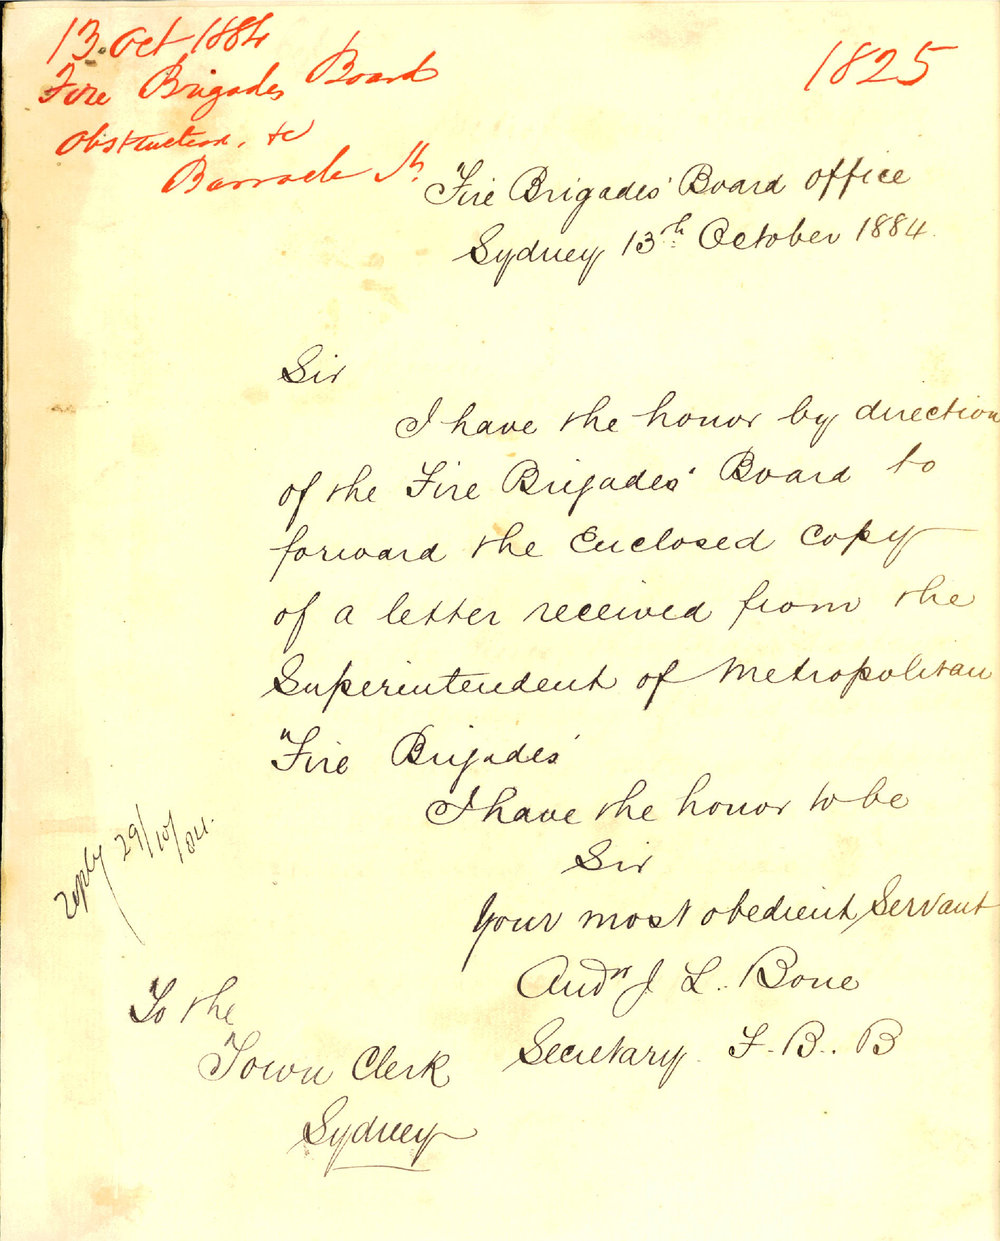 13 Oct 1884
Fire Brigades Board
Obstruction, &c
Barrack St.
1825
Fire Brigades' Board Office
Sydney 13th October 1884.
Sir
I have the honor by direction
of the Fire Brigades' Board to
forward the Enclosed Copy
of a letter received from the
Superintendent of Metropolitan
Fire Brigades'
I have the honor to be
Sir
Your most obedient Servant
Andw J L. Bone
Secretary F. B. B
reply 29/10/84.
To the
Town Clerk
Sydney